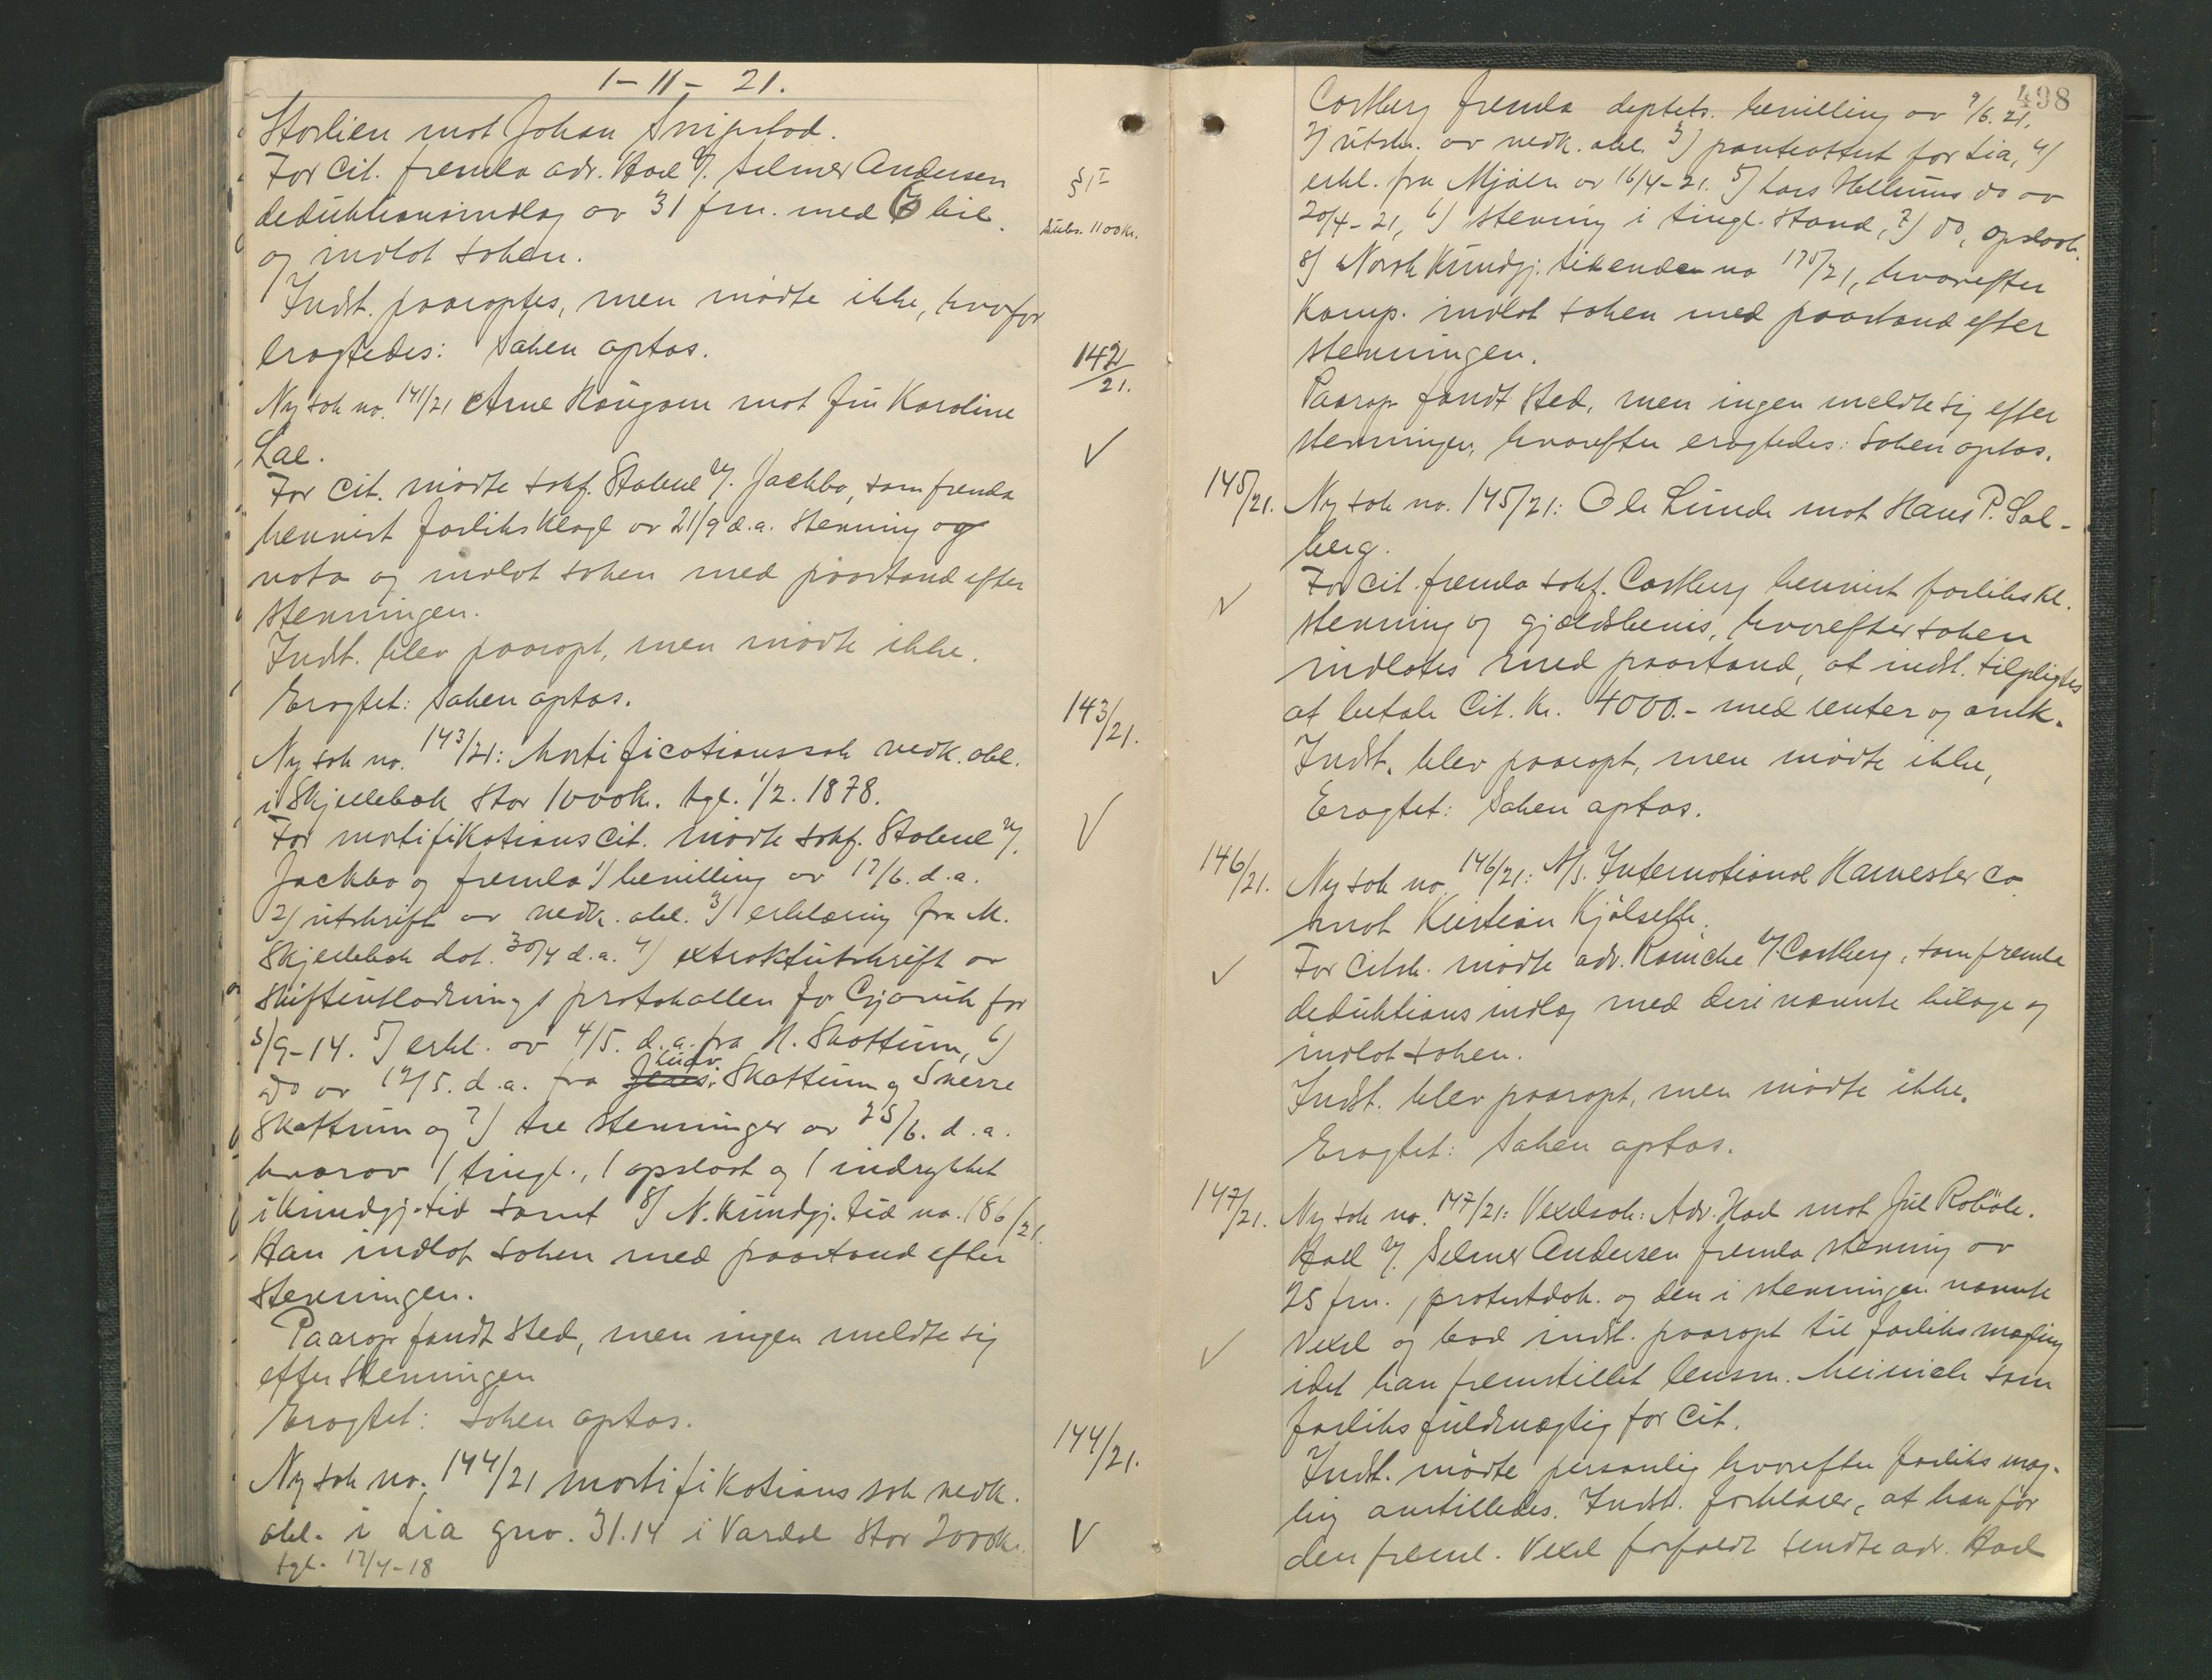 1 - 11 - 21.
Storlien mot Johan Snipstad.
For Cit. fremla adv. Hoel v/. Selmer Andersen
deduktionsindlæg av 31 f.m. med 6 bil.
og indlot saken.
§ 1 I
Subs. 1100 kr.
Indst. paaroptes, men mødte ikke, hvorfor
eragtedes: Saken optas.
142/21.
Ny sak no. 141/21 Arne Haugom mot fru Karoline
Lae.
For Cit. mødte sakf. Stabel v/. Jackbo, som fremla
henvist forliksklage av 21/9 d.a. stevning og
nota og indlot saken med paastand efter
stevningen.
Indst. blev paaropt, men møtte ikke.
Eragtet: Saken optas.
143/21.
Ny sak no. 143/21: Mortificationssak vedk. obl.
i Skjellebæk stor 1000 k. tgl. 1/2. 1878.
For mortifikations cit. mødte sakf. Stabel v/.
Jackbo og fremla 1) bevilling av 17/6. d.a.
2) utskrift av vedk. obl. 3) erklæring fra M.
Skjellebæk dat. 30/4 d.a. 4) extraktutskrift av
skifteutlodningsprotokollen for Gjøvik for
5/9-14. 5) erkl. av 4/5. d.a. fra N. Skattum, 6)
do av 12/5. d.a. fra Ludv. Skattum og Sverre
Skattum og 7) tre stevninger av 25/6. d.a.
hvorav 1 tingl., 1 opslaat og 1 indrykket
i Kundgj. tid samt 8) N. Kundgj. tid no. 186/21.
Han indlot saken med paastand efter
stevningen.
Paarop fandt sted, men ingen meldte sig
efter stevningen
Eragtet: saken optas.
144/21.
Ny sak no. 144/21 mortifikationssak vedk.
obl. i Lia gno. 31.14 i Vardal stor 2000 k.
tgl. 17/4-18
498
Castberg fremla deptets. bevilling av 9/6. 21,
2) utskr. av vedk. obl. 3) panteattest for Lia, 4)
erkl. fra Mjøen av 16/4-21. 5) Lars Hellums do av
20/4-21, 6) stevning i tingl. stand, 7) do, opslaat.
8) Norsk Kundgj. tidende no 175/21, hvorefter
Komp. indlot saken med paastand efter
stevningen.
Paarop fandt sted, men ingen meldte sig efter
stevningen, hvorefter eragtedes: Saken optas.
145/21. Ny sak no. 145/21: Ole Lunde mot Hans P. Sol-
berg.
For cit. fremla sakf. Castberg henvist forlikskl.
stevning og gjældsbevis, hvorefter saken
indlotes med paastand, at indst. tilpligtes
at betale Cit. Kr. 4000.- med renter og omk.
Indst. blev paaropt, men mødte ikke,
Eragtet: Saken optas.
146/21. Ny sak no. 146/21: A/S. International Harvester Co
mot Kristian Kjølseth.
For Citsk. mødte adv. Röniche v/. Castberg, som fremla
deduktionsindlæg med deri nævnte bilage og
indlot saken.
Indst. blev paaropt, men mødte ikke.
Eragtet: Saken optas.
147/21. Ny sak no. 147/21: Vexelsak: Adv. Hoel mot Jul Robøle.
Hoel v/. Selmer Andersen fremla stevning av
25 f.m., protestdok. og den i stevningen nævnte
Vexel og bad indst. paaropt til forliksmægling
idet han fremstillet lensm. Meinich som
forliksfuldmægtig for Cit.
Indst. mødte personlig hvorefter forliksmæg-
ling anstilledes. Indst. forklarer, at han før
den freml. Vexel forfaldt sendte adv. Hoel